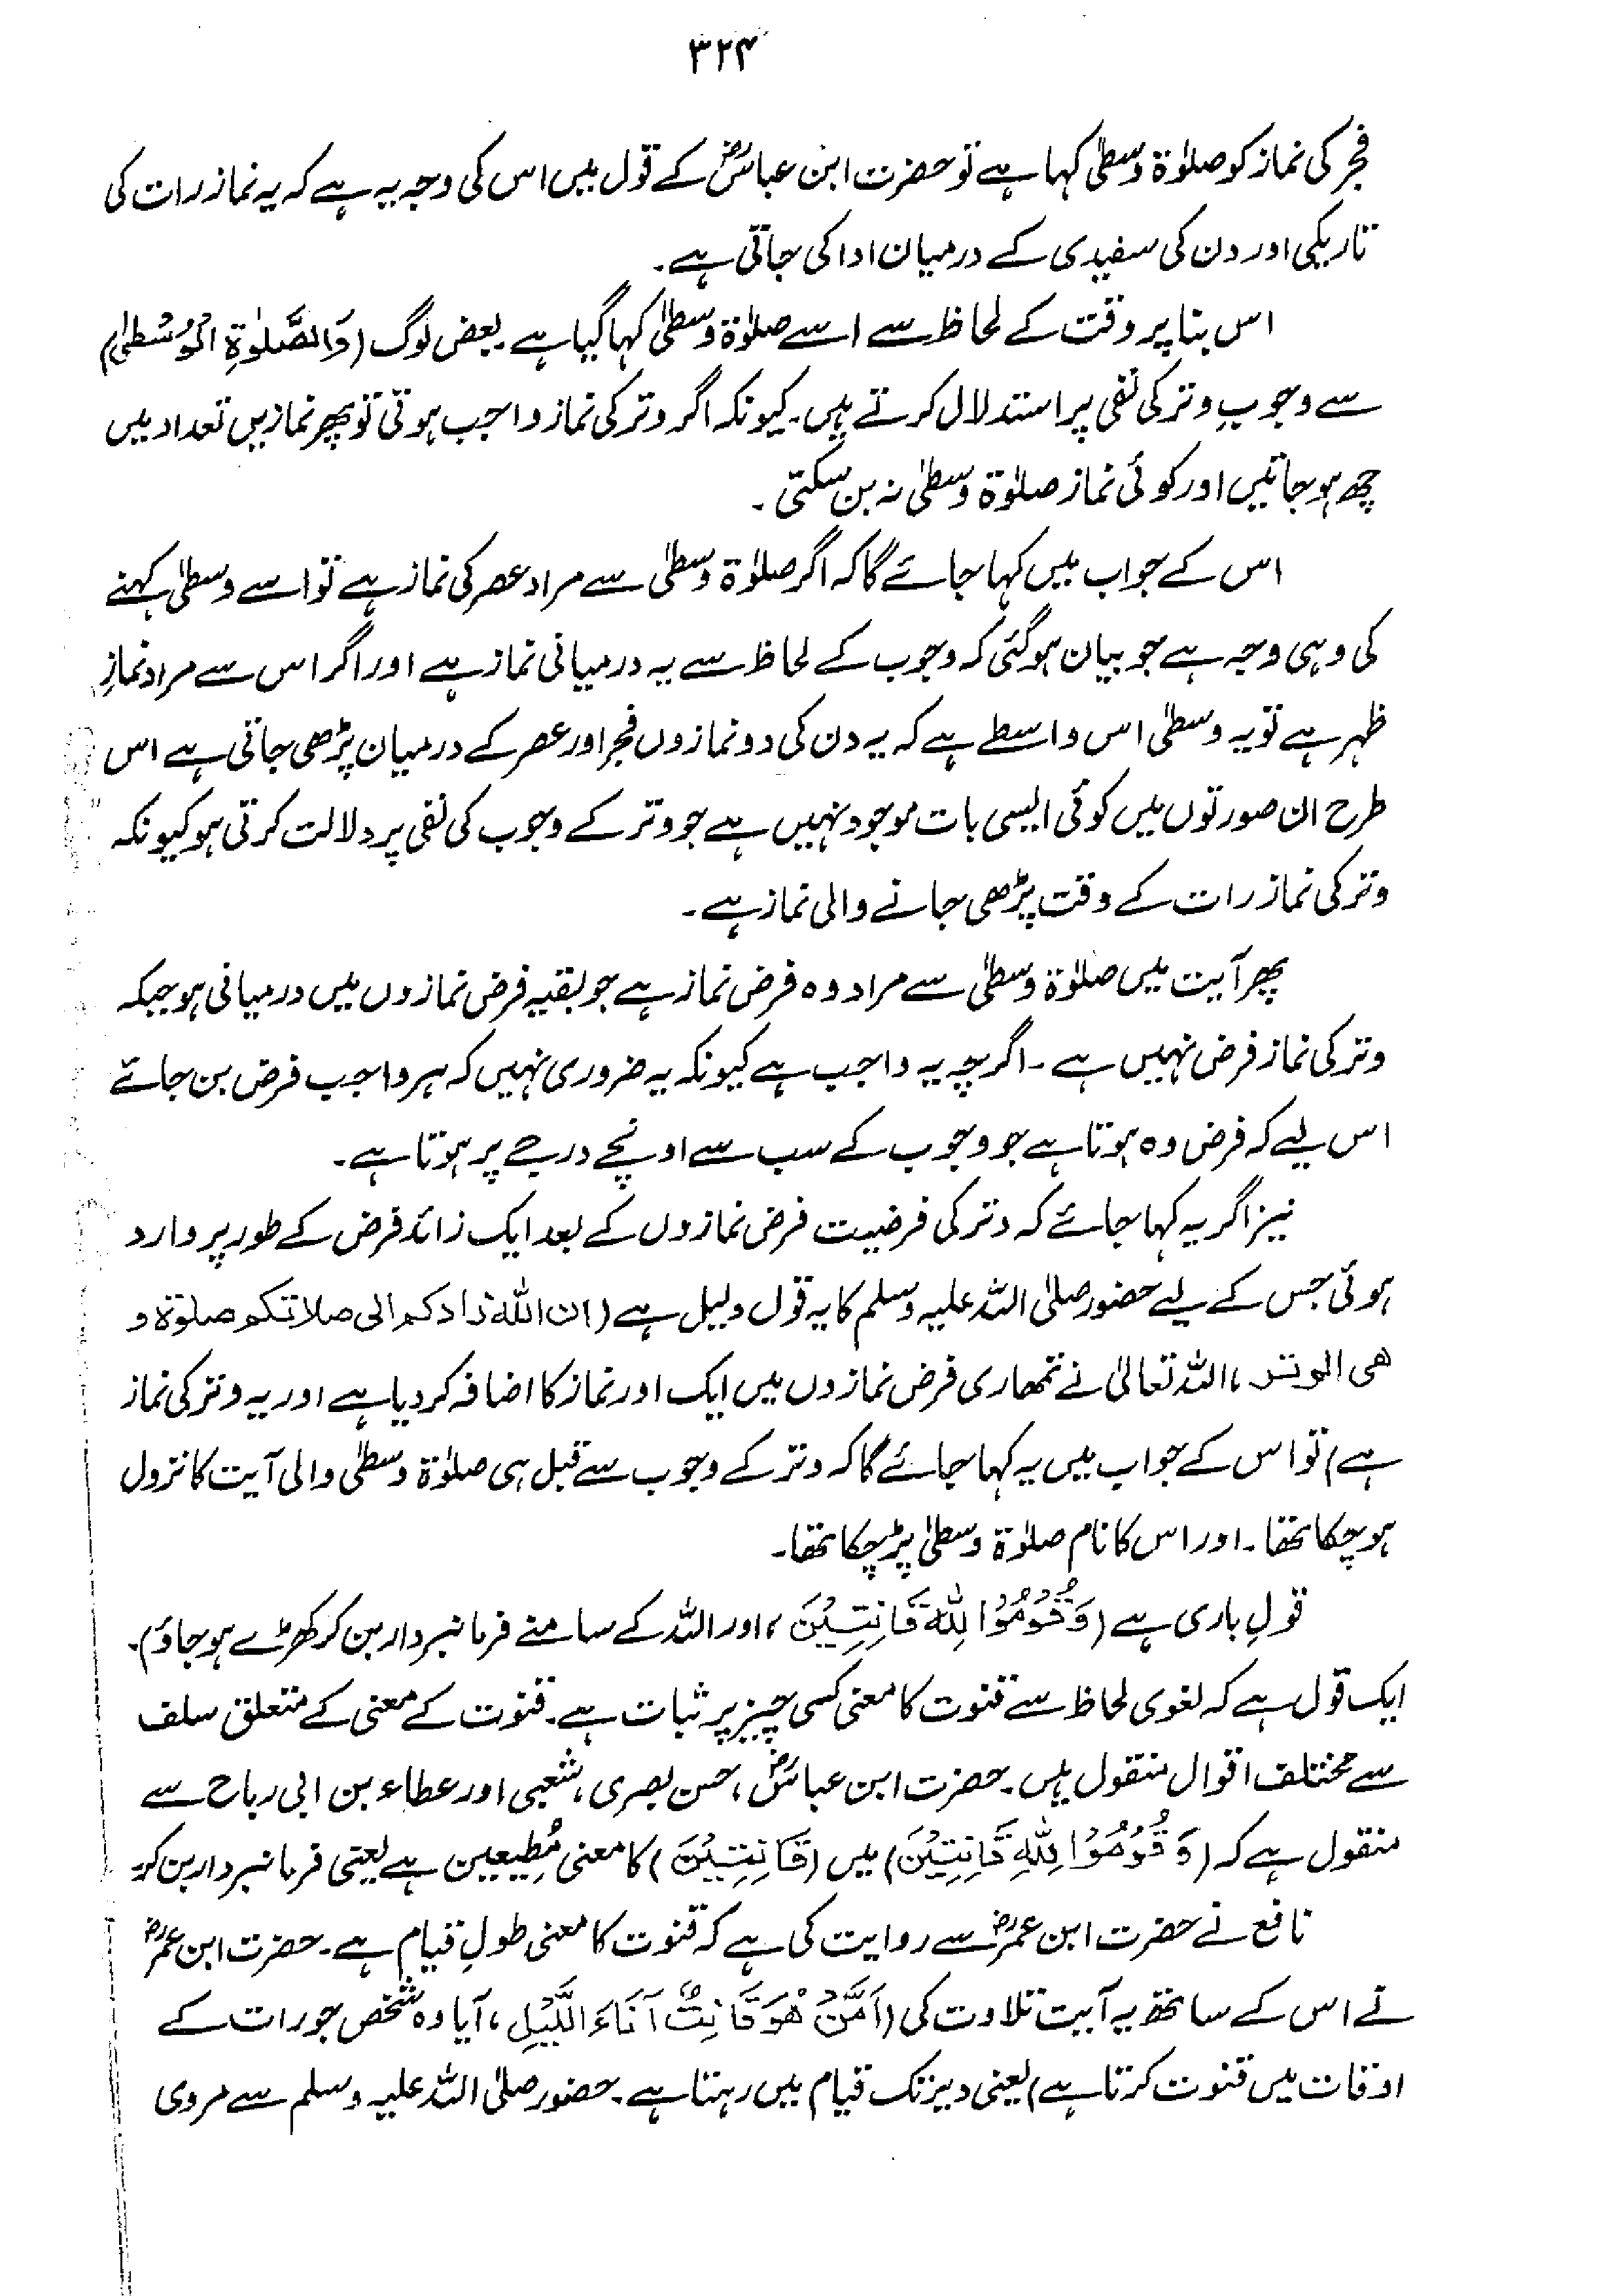 ۳۲۴
فجر کی نماز کو صلوٰۃ وسطیٰ کہا ہے تو حضرت ابن عباسؓ کے قول میں اس کی وجہ یہ ہے کہ یہ نماز رات کی
تاریکی اور دن کی سفیدی کے درمیان ادا کی جاتی ہے۔
اس بنا پر وقت کے لحاظ سے اسے صلوٰۃ وسطیٰ کہا گیا ہے۔ بعض لوگ (وَالصَّلٰوةِ الْوُسْطٰى)
سے وجوبِ وتر کی نفی پر استدلال کرتے ہیں۔ کیونکہ اگر وتر کی نماز واجب ہوتی تو پھر نمازیں تعداد میں
چھ ہو جاتیں اور کوئی نماز صلوٰۃ وسطیٰ نہ بن سکتی۔
اس کے جواب میں کہا جائے گا کہ اگر صلوٰۃ وسطیٰ سے مراد عصر کی نماز ہے تو اسے وسطیٰ کہنے
کی وہی وجہ ہے جو بیان ہو گئی کہ وجوب کے لحاظ سے یہ درمیانی نماز ہے اور اگر اس سے مراد نمازِ
ظہر ہے تو یہ وسطیٰ اس واسطے ہے کہ یہ دن کی دو نمازوں فجر اور عصر کے درمیان پڑھی جاتی ہے اس
طرح ان صورتوں میں کوئی ایسی بات موجود نہیں ہے جو وتر کے وجوب کی نفی پر دلالت کرتی ہو کیونکہ
وتر کی نماز رات کے وقت پڑھی جانے والی نماز ہے۔
پھر آیت میں صلوٰۃ وسطیٰ سے مراد وہ فرض نماز ہے جو بقیہ فرض نمازوں میں درمیانی ہو جبکہ
وتر کی نماز فرض نہیں ہے۔ اگرچہ یہ واجب ہے کیونکہ یہ ضروری نہیں کہ ہر واجب فرض بن جائے
اس لیے کہ فرض وہ ہوتا ہے جو وجوب کے سب سے اونچے درجے پر ہوتا ہے۔
نیز اگر یہ کہا جائے کہ وتر کی فرضیت فرض نمازوں کے بعد ایک زائد فرض کے طور پر وارد
ہوئی جس کے لیے حضور صلی اللہ علیہ وسلم کا یہ قول دلیل ہے (ان الله زادکم الی صلاتکم صلوٰة و
هی الوتر، اللہ تعالیٰ نے تمھاری فرض نمازوں میں ایک اور نماز کا اضافہ کر دیا ہے اور یہ وتر کی نماز
ہے) تو اس کے جواب میں یہ کہا جائے گا کہ وتر کے وجوب سے قبل ہی صلوٰۃ وسطیٰ والی آیت کا نزول
ہو چکا تھا۔ اور اس کا نام صلوٰۃ وسطیٰ پڑ چکا تھا۔
قولِ باری ہے (وَقُوْمُوْا لِلّٰهِ قَانِتِيْنَ، اور اللہ کے سامنے فرمانبردار بن کر کھڑے ہو جاؤ)۔
ایک قول ہے کہ لغوی لحاظ سے قنوت کا معنی کسی چیز پر ثبات ہے۔ قنوت کے معنی کے متعلق سلف
سے مختلف اقوال منقول ہیں۔ حضرت ابن عباسؓ، حسن بصری، شعبی اور عطاء بن ابی رباح سے
منقول ہے کہ (وَقُوْمُوْا لِلّٰهِ قَانِتِيْنَ) میں (قَانِتِيْنَ) کا معنی مُطِیعین ہے یعنی فرمانبردار بن کر
نافع نے حضرت ابن عمرؓ سے روایت کی ہے کہ قنوت کا معنی طولِ قیام ہے۔ حضرت ابن عمرؓ
نے اس کے ساتھ یہ آیت تلاوت کی (اَمَّنْ هُوَ قَانِتٌ اٰنَاءَ اللَّيْلِ، آیا وہ شخص جو رات کے
اوقات میں قنوت کرتا ہے) یعنی دیر تک قیام میں رہتا ہے۔ حضور صلی اللہ علیہ وسلم سے مروی